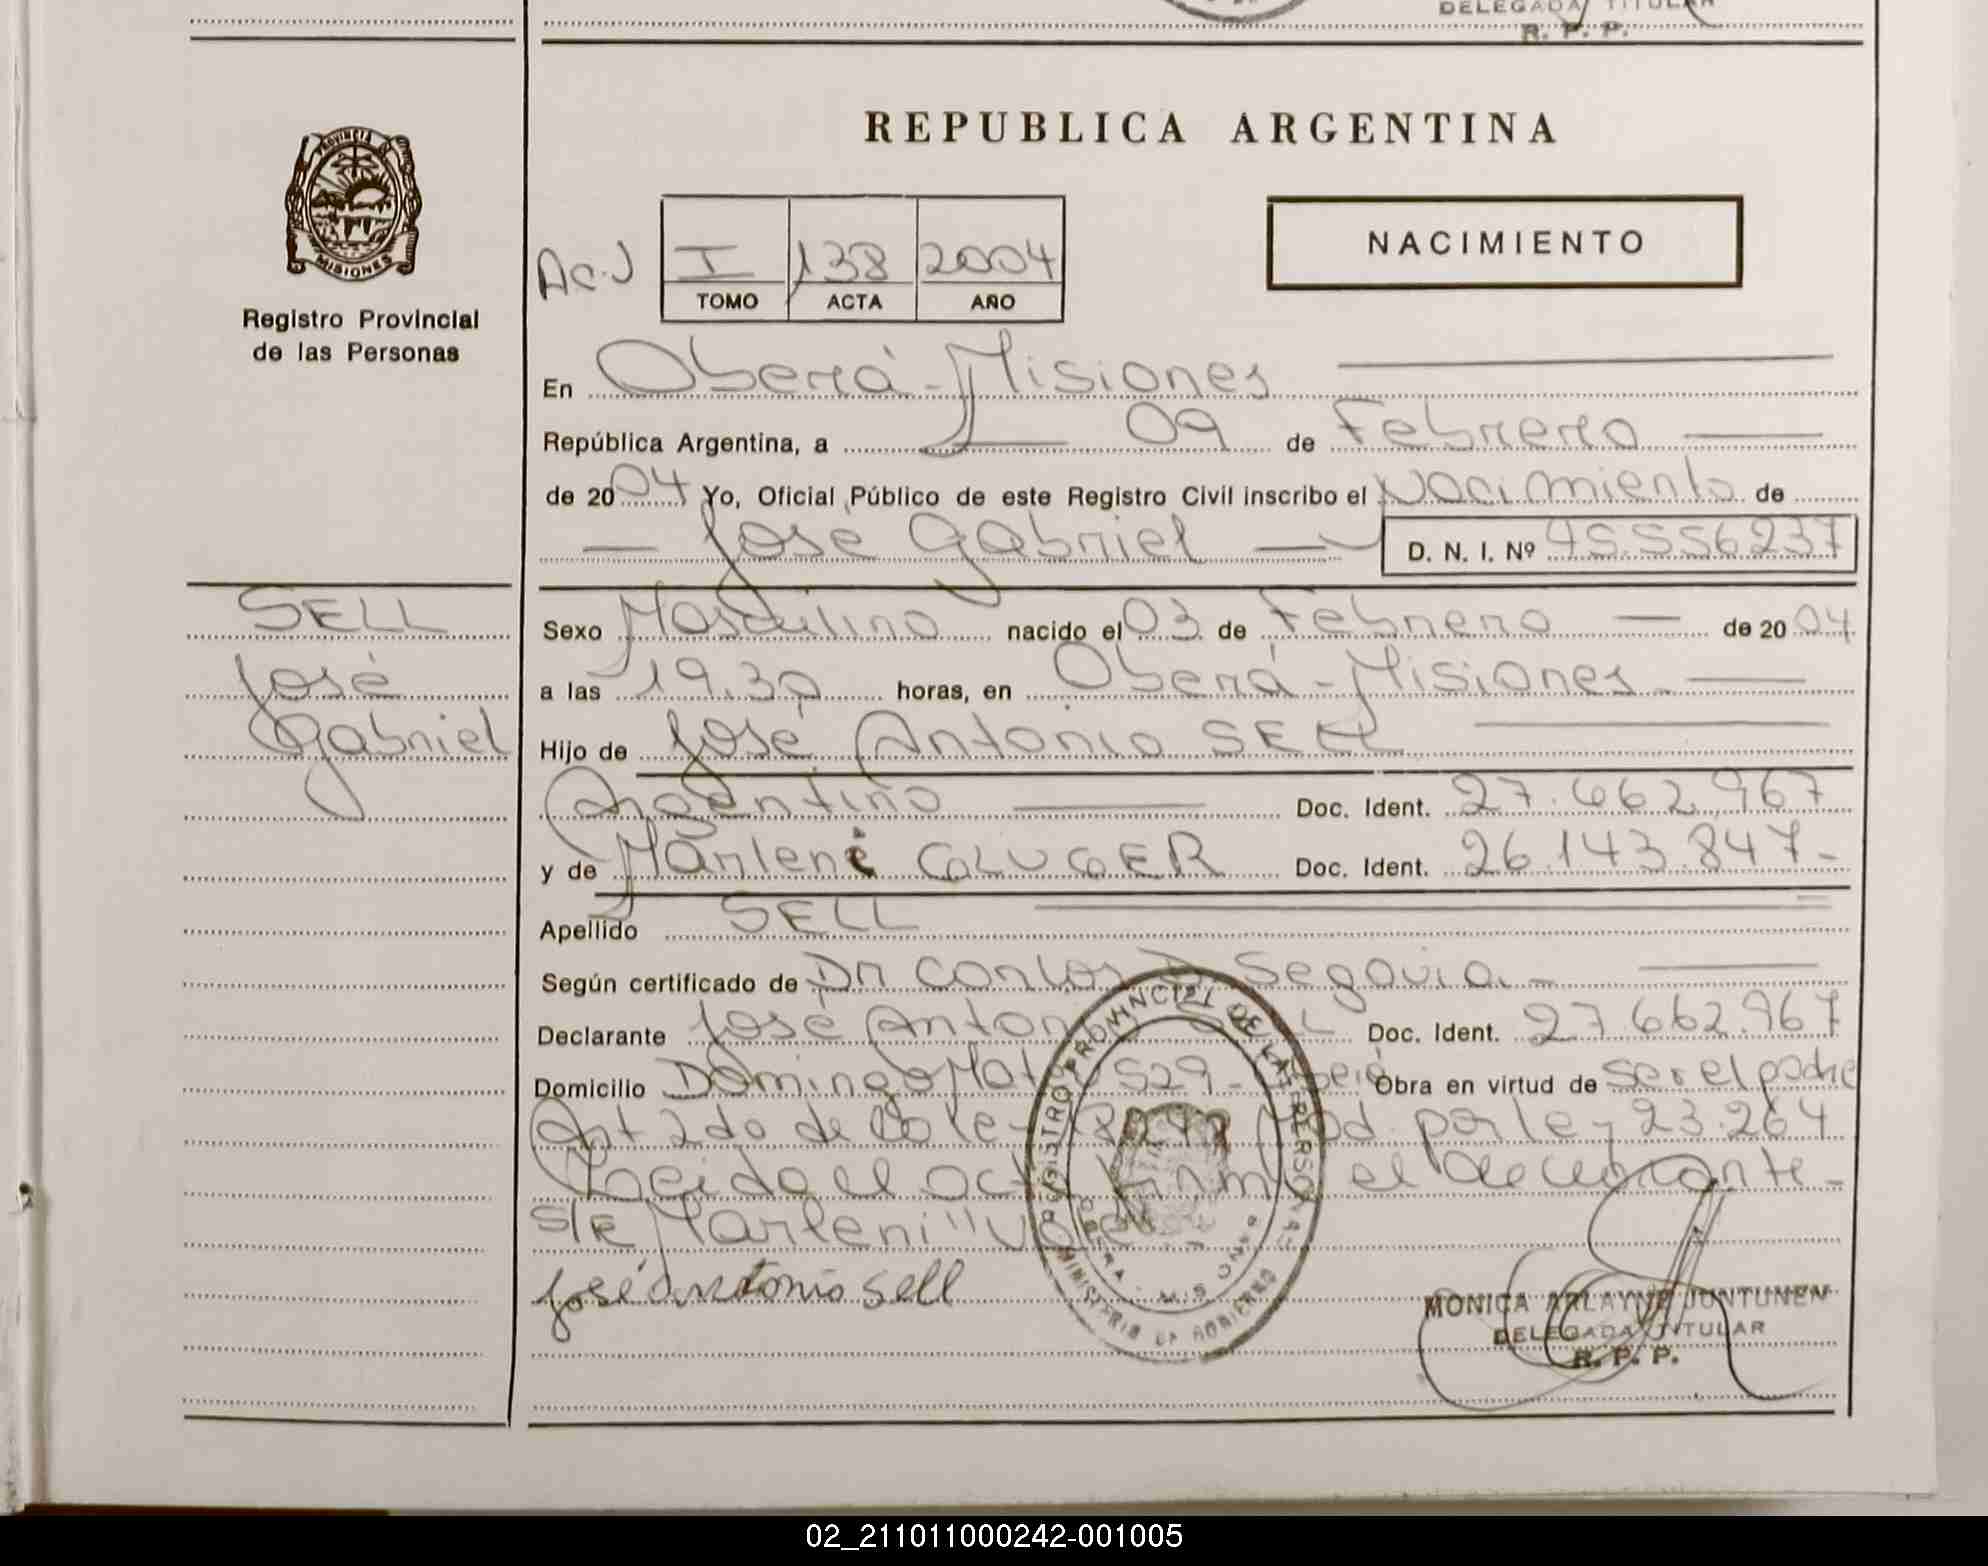 DELEGADA TITULAR
R. P. P.
PROVINCIA DE
MISIONES
Registro Provincial
de las Personas
REPUBLICA ARGENTINA
NACIMIENTO
I 138 2004
TOMO ACTA AÑO
En Oberá - Misiones
República Argentina, a 09 de Febrero
de 2004 Yo, Oficial Público de este Registro Civil inscribo el Nacimiento de
José Gabriel D. N. I. Nº 45.556237
SELL
José
Gabriel
Sexo Masculino nacido el 03 de Febrero de 2004
a las 19.30 horas, en Oberá - Misiones
Hijo de José Antonio SELL
Argentino Doc. Ident. 27.662.967
y de Marleni GLUGER Doc. Ident. 26.143.847-
Apellido SELL
Según certificado de Dr Carlos D Segovia
Declarante José Antonio SELL Doc. Ident. 27.662.967
Domicilio Domingo 529 - Oberá Obra en virtud de ser el padre
Art 2do de la ley Mod. por ley 23.264
Leida el acta firma el declarante -
S/R Marleni "Vale
José Antonio Sell
REGISTRO PROVINCIAL DE LAS PERSONAS
MINISTERIO DE GOBIERNO
OBERA - MISIONES
MONICA ARLAYNE JUNTUNEN
DELEGADA TITULAR
R. P. P.
02_211011000242-001005